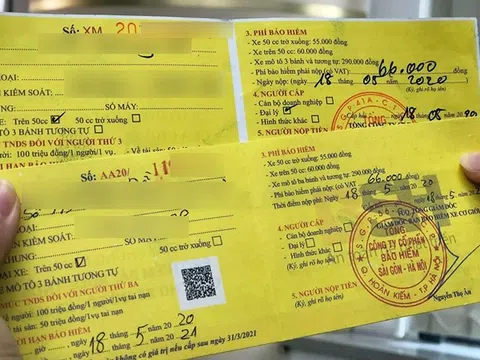 Số: XM 20
3. PHÍ BẢO HIỂM
- Xe 50 cc trở xuống: 55.000 đồng
- Xe trên 50 cc: 60.000 đồng
- Xe mô tô 3 bánh và tương tự: 290.000 đồng
- Phí bảo hiểm phải nộp (có VAT): 66.000 đồng
- Nộp ngày: 18 tháng 05 năm 2020
4. NGƯỜI CẤP
- Cán bộ doanh nghiệp
- Đại lý
- Hình thức khác
(Ký, ghi rõ họ tên)
5. NGƯỜI NỘP TIỀN
LOẠI:
KIỂM SOÁT:
SỐ MÁY:
Trên 50cc
50 cc trở xuống:
TÔ 3 BÁNH TƯƠNG TỰ
TNDS ĐỐI VỚI NGƯỜI THỨ 3
người: 100 triệu đồng/1 người/1 vụ.
HẠN BẢO HIỂM
Số: AA20/
3. PHÍ BẢO HIỂM
- Xe 50 cc trở xuống: 55.000 đồng
- Xe trên 50 cc: 60.000 đồng
- Xe mô tô ba bánh và tương tự: 290.000 đồng
- Phí bảo hiểm phải nộp (có VAT) 66.000 đồng
Thời điểm nộp phí: Ngày 18 tháng 5 năm 2020
4. NGƯỜI CẤP
- Cán bộ doanh nghiệp
- Đại lý
- Hình thức khác
5. NGƯỜI NỘP TIỀN
(Ký, ghi rõ họ tên)
18 tháng 5 năm 2020
TỔNG GIÁM ĐỐC
GIÁM ĐỐC BAN BẢO HIỂM XE CƠ GIỚI
TỔNG
CÔNG TY CỔ PHẦN
BẢO HIỂM
SÀI GÒN - HÀ NỘI
Q. HOÀN KIẾM - TP HÀ NỘI
Nguyễn Thị Ân
KIỂM SOÁT:
SỐ MÁY
ĐẠI XE: Trên 50 cc
50 cc trở xuống:
E MÔ TÔ 3 BÁNH TƯƠNG TỰ
MỨC TNDS ĐỐI VỚI NGƯỜI THỨ BA
người: 100 triệu đồng/1 người/1 vụ tai nạn
tài sản: 50 triệu đồng/1 vụ tai nạn
HẠN BẢO HIỂM
ngày 18 tháng 5 năm 2020
18 tháng 5 năm 2021
không có giá trị nếu cấp sau ngày 31/3/2021